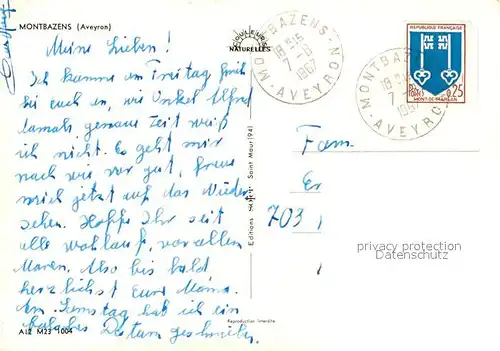 MONTBAZENS (Aveyron)
COULEURS
NATURELLES
MONTBAZENS
18H15
7-8
1967
AVEYRON
MONTBAZENS
18H15
7-8
1967
AVEYRON
REPUBLIQUE FRANÇAISE
POSTES
0,25
MONT-DE-MARSAN
Meine Lieben!
Ich komme am Freitag früh
bei euch an, wie Onkel Alfred
damals, genaue Zeit weiß
ich nicht. Es geht mir
nach wie vor gut, freue
mich jetzt auf das Wieder
sehen. Hoffe Ihr seit
alle wohlauf, vor allem
Maren. Also bis bald
herzlichst Eure Mama.
Am Samstag hab ich ein
falsches Datum geschrieben.
Fam.
Er
703
privacy protection
Datenschutz
Editions Saint Maur (94)
Reproduction interdite
A12 M23 1004